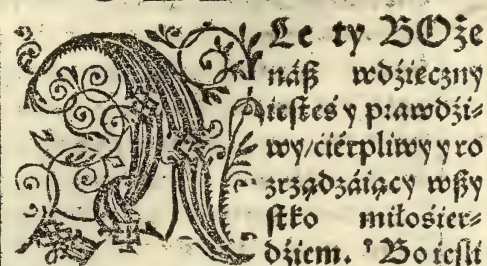 ALe ty BOże
náß wdźięczny
iesteś y prawdźi⸗
wy/ciérpliwy y ro
zrządzáiący wßy
stko miłośier⸗
dźiem. Bo iesli